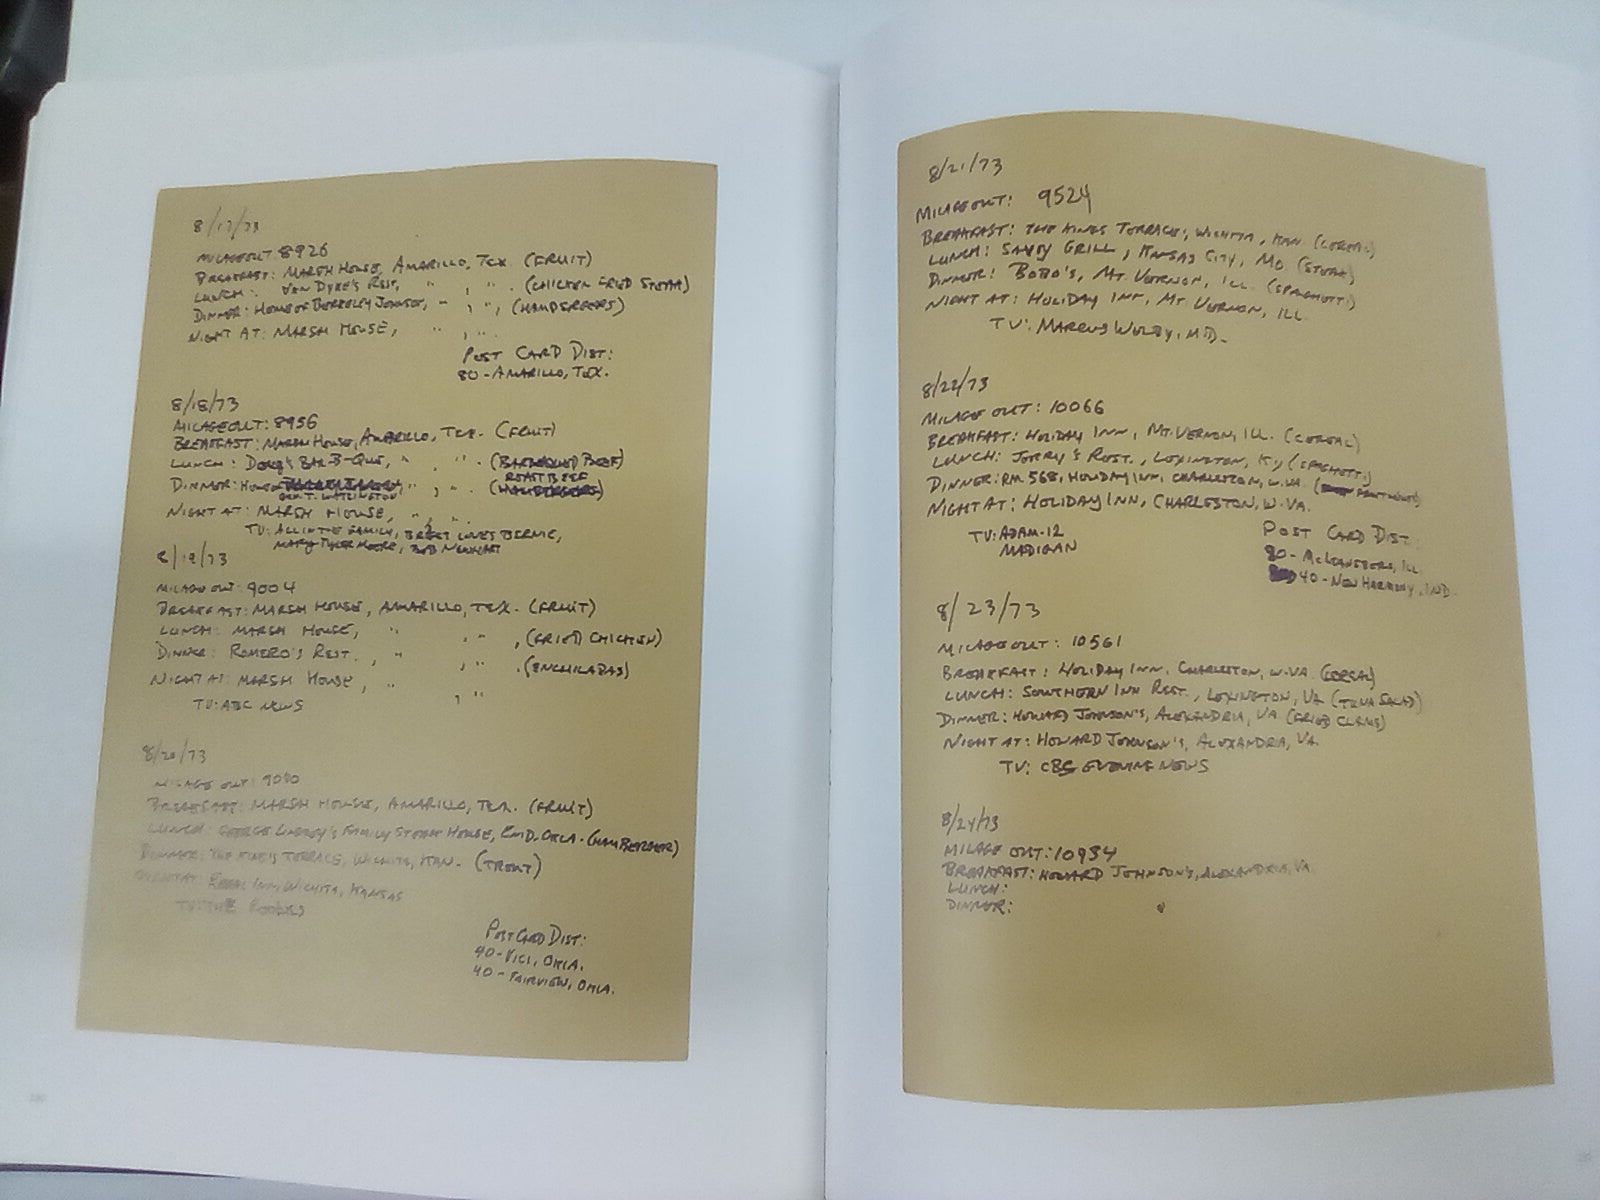 8/17/73
MILAGE OUT: 8926
BREAKFAST: MARSH HOUSE, AMARILLO, TEX. (FRUIT)
LUNCH: VAN DYKE'S REST., " , " . (CHICKEN FRIED STEAK)
DINNER: HOME OF BERKELEY JOHNSON, " , " , (HAMBERGERS)
NIGHT AT: MARSH HOUSE, " , " .
POST CARD DIST:
80-AMARILLO, TEX.
8/18/73
MILAGE OUT: 8956
BREAKFAST: MARSH HOUSE, AMARILLO, TEX. (FRUIT)
LUNCH: DOUG'S BAR-B-QUE, " , " . (BARBEQUED BEEF)
ROAST BEEF
DINNER: HOME OF , " , " . (HAMBERGERS)
WATLINGTON
NIGHT AT: MARSH HOUSE, " , "
TV: ALL IN THE FAMILY, BRIDGET LOVES BERNIE,
MARY TYLER MOORE, BOB NEWHART
8/19/73
MILAGE OUT: 9004
BREAKFAST: MARSH HOUSE, AMARILLO, TEX. (FRUIT)
LUNCH: MARSH HOUSE, " , " , (FRIED CHICKEN)
DINNER: ROMERO'S REST. , " , " . (ENCHILADAS)
NIGHT AT: MARSH HOUSE , " , "
TV: ABC NEWS
8/20/73
MILAGE OUT:
BREAKFAST: MARSH HOUSE, AMARILLO, TEX. (FRUIT)
LUNCH: GEORGE LINDSEY'S FAMILY STEAK HOUSE, ENID, OKLA. (HAMBERGER)
DINNER: THE KING'S TERRACE, WICHITA, KAN. (TROUT)
NIGHT AT: INN, WICHITA, KANSAS
TV: THE ROOKIES
POST CARD DIST:
40-VICI, OKLA.
40-FAIRVIEW, OKLA.
8/21/73
MILAGE OUT: 9524
BREAKFAST: THE KINGS TERRACE, WICHITA, KAN. (CEREAL)
LUNCH: SAVOY GRILL, KANSAS CITY, MO. (STEAK)
DINNER: BOBO'S, MT. VERNON, ILL. (SPAGHETTI)
NIGHT AT: HOLIDAY INN, MT. VERNON, ILL.
TV: MARCUS WELBY, M.D.
8/22/73
MILAGE OUT: 10066
BREAKFAST: HOLIDAY INN, MT. VERNON, ILL. (CEREAL)
LUNCH: JERRY'S REST., LEXINGTON, KY (SPAGHETTI)
DINNER: RM 568, HOLIDAY INN, CHARLESTON, W. VA.
NIGHT AT: HOLIDAY INN, CHARLESTON, W. VA.
TV: ADAM-12
MADIGAN
POST CARD DIST:
80-McLEANSBORO, ILL
40-NEW HARMONY, IND.
8/23/73
MILAGE OUT: 10561
BREAKFAST: HOLIDAY INN, CHARLESTON, W. VA. (CEREAL)
LUNCH: SOUTHERN INN REST., LEXINGTON, VA (TUNA SALAD)
DINNER: HOWARD JOHNSON'S, ALEXANDRIA, VA (FRIED CLAMS)
NIGHT AT: HOWARD JOHNSON'S, ALEXANDRIA, VA.
TV: CBS EVENING NEWS
8/24/73
MILAGE OUT: 10934
BREAKFAST: HOWARD JOHNSON'S, ALEXANDRIA, VA.
LUNCH:
DINNER: